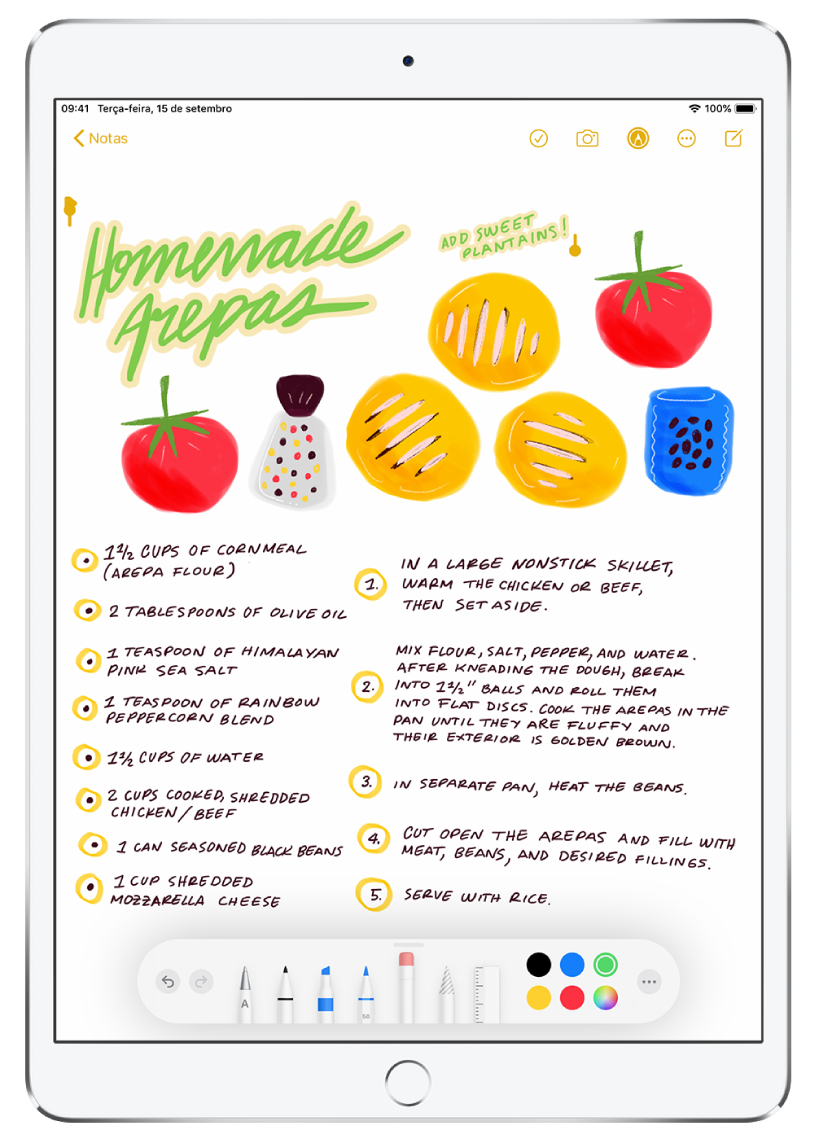 09:41 Terça-feira, 15 de setembro
100%
Notas
Homemade
Arepas
ADD SWEET
PLANTAINS!
1½ CUPS OF CORNMEAL
(AREPA FLOUR)
2 TABLESPOONS OF OLIVE OIL
1 TEASPOON OF HIMALAYAN
PINK SEA SALT
1 TEASPOON OF RAINBOW
PEPPERCORN BLEND
1½ CUPS OF WATER
2 CUPS COOKED, SHREDDED
CHICKEN/BEEF
1 CAN SEASONED BLACK BEANS
1 CUP SHREDDED
MOZZARELLA CHEESE
1. IN A LARGE NONSTICK SKILLET,
WARM THE CHICKEN OR BEEF,
THEN SET ASIDE.
2. MIX FLOUR, SALT, PEPPER, AND WATER.
AFTER KNEADING THE DOUGH, BREAK
INTO 1½" BALLS AND ROLL THEM
INTO FLAT DISCS. COOK THE AREPAS IN THE
PAN UNTIL THEY ARE FLUFFY AND
THEIR EXTERIOR IS GOLDEN BROWN.
3. IN SEPARATE PAN, HEAT THE BEANS.
4. CUT OPEN THE AREPAS AND FILL WITH
MEAT, BEANS, AND DESIRED FILLINGS.
5. SERVE WITH RICE.
A
50